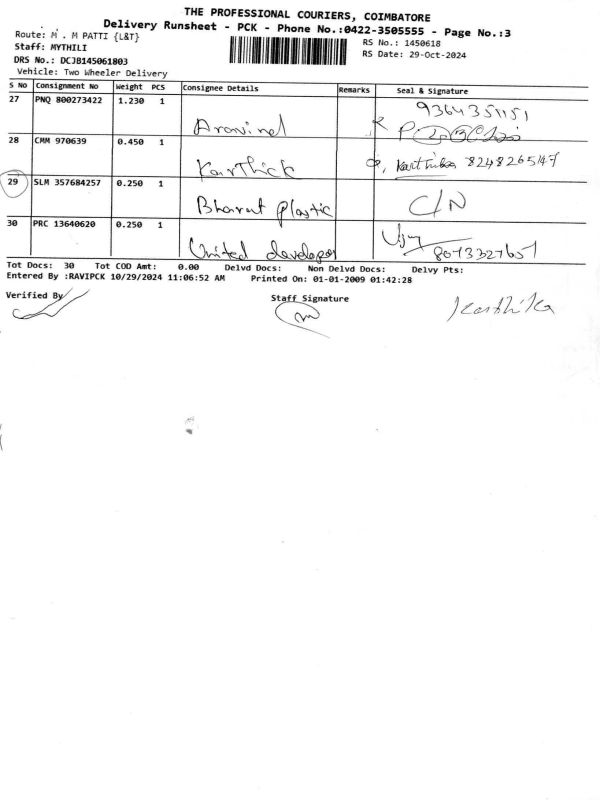 THE PROFESSIONAL COURIERS, COIMBATORE
Delivery Runsheet - PCK - Phone No.:0422-3505555 - Page No.:3
Route: M . M PATTI {L&T}
RS No.: 1450618
Staff: MYTHILI
RS Date: 29-Oct-2024
DRS No.: DCJB145061803
Vehicle: Two Wheeler Delivery
S No Consignment No Weight PCS Consignee Details Remarks Seal & Signature
27 PNQ 800273422 1.230 1 Aravind 9364351151
28 CMM 970639 0.450 1 Karthick Karthika
29 SLM 357684257 0.250 1 Bharat plastic C/N
30 PRC 13640620 0.250 1 United developer
Tot Docs: 30 Tot COD Amt: 0.00 Delvd Docs: Non Delvd Docs: Delvy Pts:
Entered By :RAVIPCK 10/29/2024 11:06:52 AM Printed On: 01-01-2009 01:42:28
Verified By Staff Signature Karthika